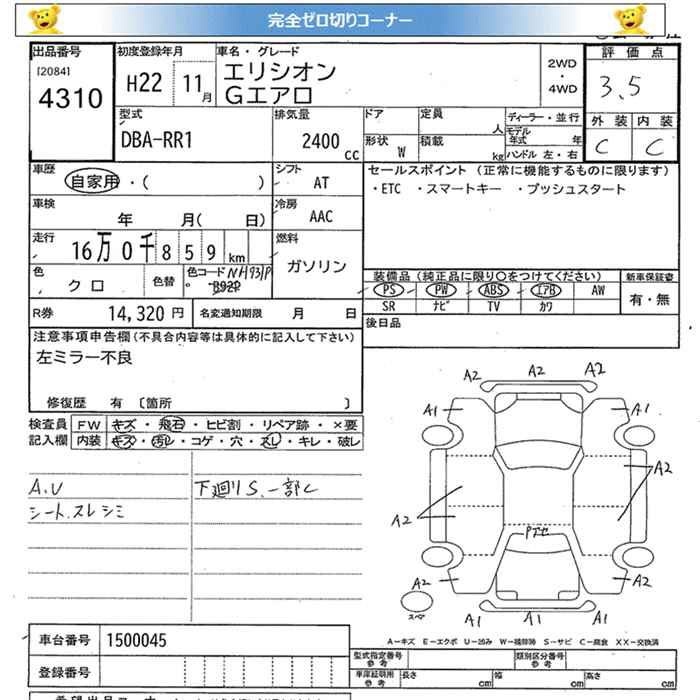 完全ゼロ切りコーナー
出品番号
[2084]
4310
初度登録年月
H22 11 月
車名・グレード
エリシオン
Gエアロ
2WD
・
4WD
評価点
3.5
外装 内装
C C
型式
DBA-RR1
排気量
2400 CC
ドア
定員 人
形状 W
積載 kg
ディーラー・並行
モデル年式 年
ハンドル 左・右
車歴
自家用・( )
シフト
AT
車検
年 月( 日)
冷房
AAC
走行
16万0千859km
燃料
ガソリン
色
クロ
色替
色コード NH731P
B92P
R券 14,320 円
名変通知期限 月 日
セールスポイント (正常に機能するものに限ります)
・ETC ・スマートキー ・プッシュスタート
装備品 (純正品に限り〇をつけてください)
PS PW ABS エアB AW
SR ナビ TV カワ
新車保証書
有・無
後日品
注意事項申告欄 (不具合内容等は具体的に記入して下さい)
左ミラー不良
修復歴 有 〔箇所 〕
検査員記入欄
FW キズ・飛石・ヒビ割・リペア跡・×要
内装 キズ・汚レ・コゲ・穴・スレ・キレ・破レ
A.V
シート.スレシミ
下廻りS.一部C
A2 A2 A2
A1 A1
A2 A2
Pアセ
A2 A2
A1 A1 A1
スペア
A-キズ E-エクボ U-凹み W-補修跡 S-サビ C-腐食 XX-交換済
車台番号 1500045
登録番号
型式指定番号 参考
類別区分番号 参考
車庫証明用 参考
長さ cm 幅 cm 高さ cm